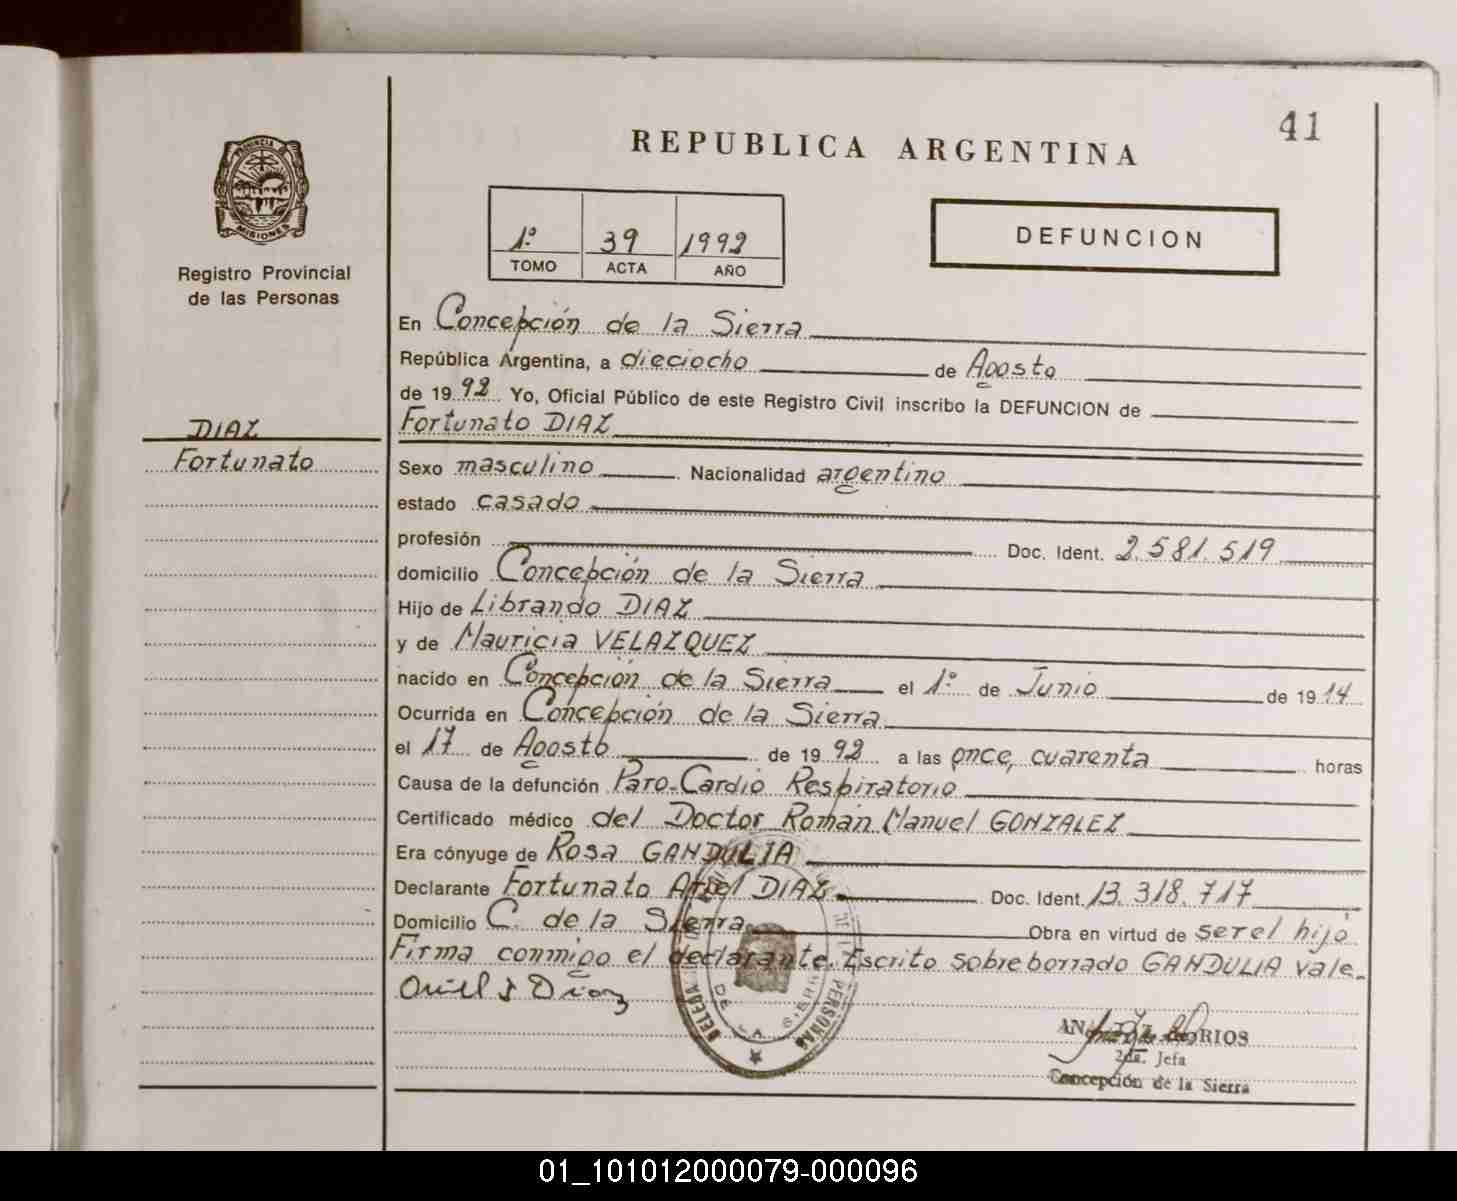 41
REPUBLICA ARGENTINA
PROVINCIA DE
MISIONES
Registro Provincial
de las Personas
1º 39 1992
TOMO ACTA AÑO
DEFUNCION
DIAZ
Fortunato
En Concepción de la Sierra
República Argentina, a dieciocho de Agosto
de 1992 Yo, Oficial Público de este Registro Civil inscribo la DEFUNCION de
Fortunato DIAZ
Sexo masculino Nacionalidad argentino
estado casado
profesión Doc. Ident. 2.581.519
domicilio Concepción de la Sierra
Hijo de Librando DIAZ
y de Mauricia VELAZQUEZ
nacido en Concepción de la Sierra el 1º de Junio de 1914
Ocurrida en Concepción de la Sierra
el 17 de Agosto de 1992 a las once, cuarenta horas
Causa de la defunción Paro-Cardio Respiratorio
Certificado médico del Doctor Román Manuel GONZALEZ
Era cónyuge de Rosa GANDULIA
Declarante Fortunato Ariel DIAZ Doc. Ident. 13.318.717
Domicilio C. de la Sierra Obra en virtud de ser el hijo
Firma conmigo el declarante. Escrito sobreborrado GANDULIA vale.
DE LA SIERRA
PERSONAS
RIOS
2da. Jefa
Concepción de la Sierra
01_101012000079-000096